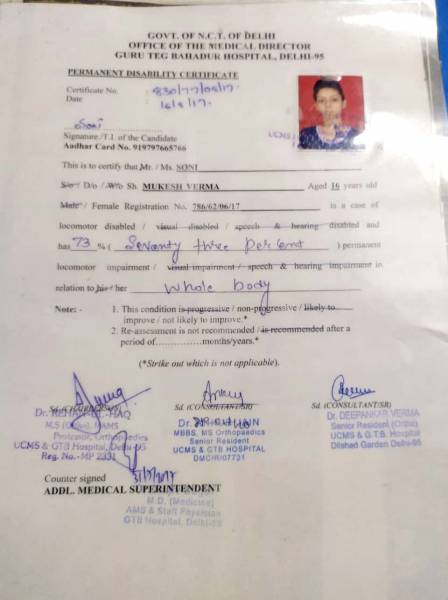 GOVT. OF N.C.T. OF DELHI
OFFICE OF THE MEDICAL DIRECTOR
GURU TEG BAHADUR HOSPITAL, DELHI-95
PERMANENT DISABILITY CERTIFICATE
Certificate No.
Date
Soni
Signature/T.I. of the Candidate
Aadhar Card No. 919797665766
UCMS
This is to certify that Mr. / Ms. SONI
S/o / D/o / W/o Sh. MUKESH VERMA Aged 16 years old
Male / Female Registration No. 786/62/06/17 is a case of
locomotor disabled / visual disabled / speech & hearing disabled and
has 73 % ( Seventy three percent ) permanent
locomotor impairment / visual impairment / speech & hearing impairment in
relation to his / her whole body
Note: - 1. This condition is progressive / non-progressive / likely to
improve / not likely to improve.*
2. Re-assessment is not recommended / is recommended after a
period of...............months/years.*
(*Strike out which is not applicable).
Sd. (CONSULTANT/SR)
Sd. (CONSULTANT/SR)
Dr.
M.S (Ortho), MAMS
Professor, Orthopaedics
UCMS & GTB Hospital, Delhi-95
Reg. No.-MP 2331
MBBS, MS Orthopaedics
Senior Resident
UCMS & GTB HOSPITAL
DMC/R/07731
Dr. DEEPANKAR VERMA
Senior Resident (Ortho)
UCMS & G.T.B. Hospital
Dilshad Garden Delhi-95
Counter signed
ADDL. MEDICAL SUPERINTENDENT
M.D. (Medicine)
AMS & Staff Physician
GTB Hospital, Delhi-95